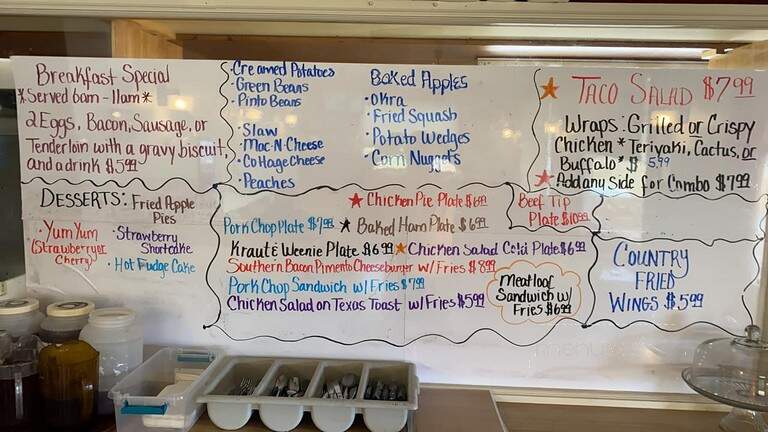 Breakfast Special
*Served 6am-11am*
2 Eggs, Bacon, Sausage, or
Tenderloin with a gravy biscuit,
and a drink $5.99
·Creamed Potatoes
·Green Beans
·Pinto Beans
·Slaw
·Mac-N-Cheese
·Cottage Cheese
·Peaches
Baked Apples
·Okra
·Fried Squash
·Potato Wedges
·Corn Nuggets
Taco Salad $7.99
Wraps: Grilled or Crispy
Chicken * Teriyaki, Cactus, or
Buffalo * $5.99
Add any Side for Combo $7.99
Desserts: Fried Apple
Pies
·Yum Yum
(Strawberry or
Cherry)
·Strawberry
Shortcake
·Hot Fudge Cake
Chicken Pie Plate $6.99
Pork Chop Plate $7.99
Baked Ham Plate $6.99
Kraut & Weenie Plate $6.99
Chicken Salad Cold Plate $6.99
Southern Bacon Pimento Cheeseburger w/ Fries $8.99
Pork Chop Sandwich w/ Fries $7.99
Chicken Salad on Texas Toast w/ Fries $5.99
Meatloaf
Sandwich w/
Fries $6.99
Beef Tip
Plate $10.99
Country
Fried
Wings $5.99